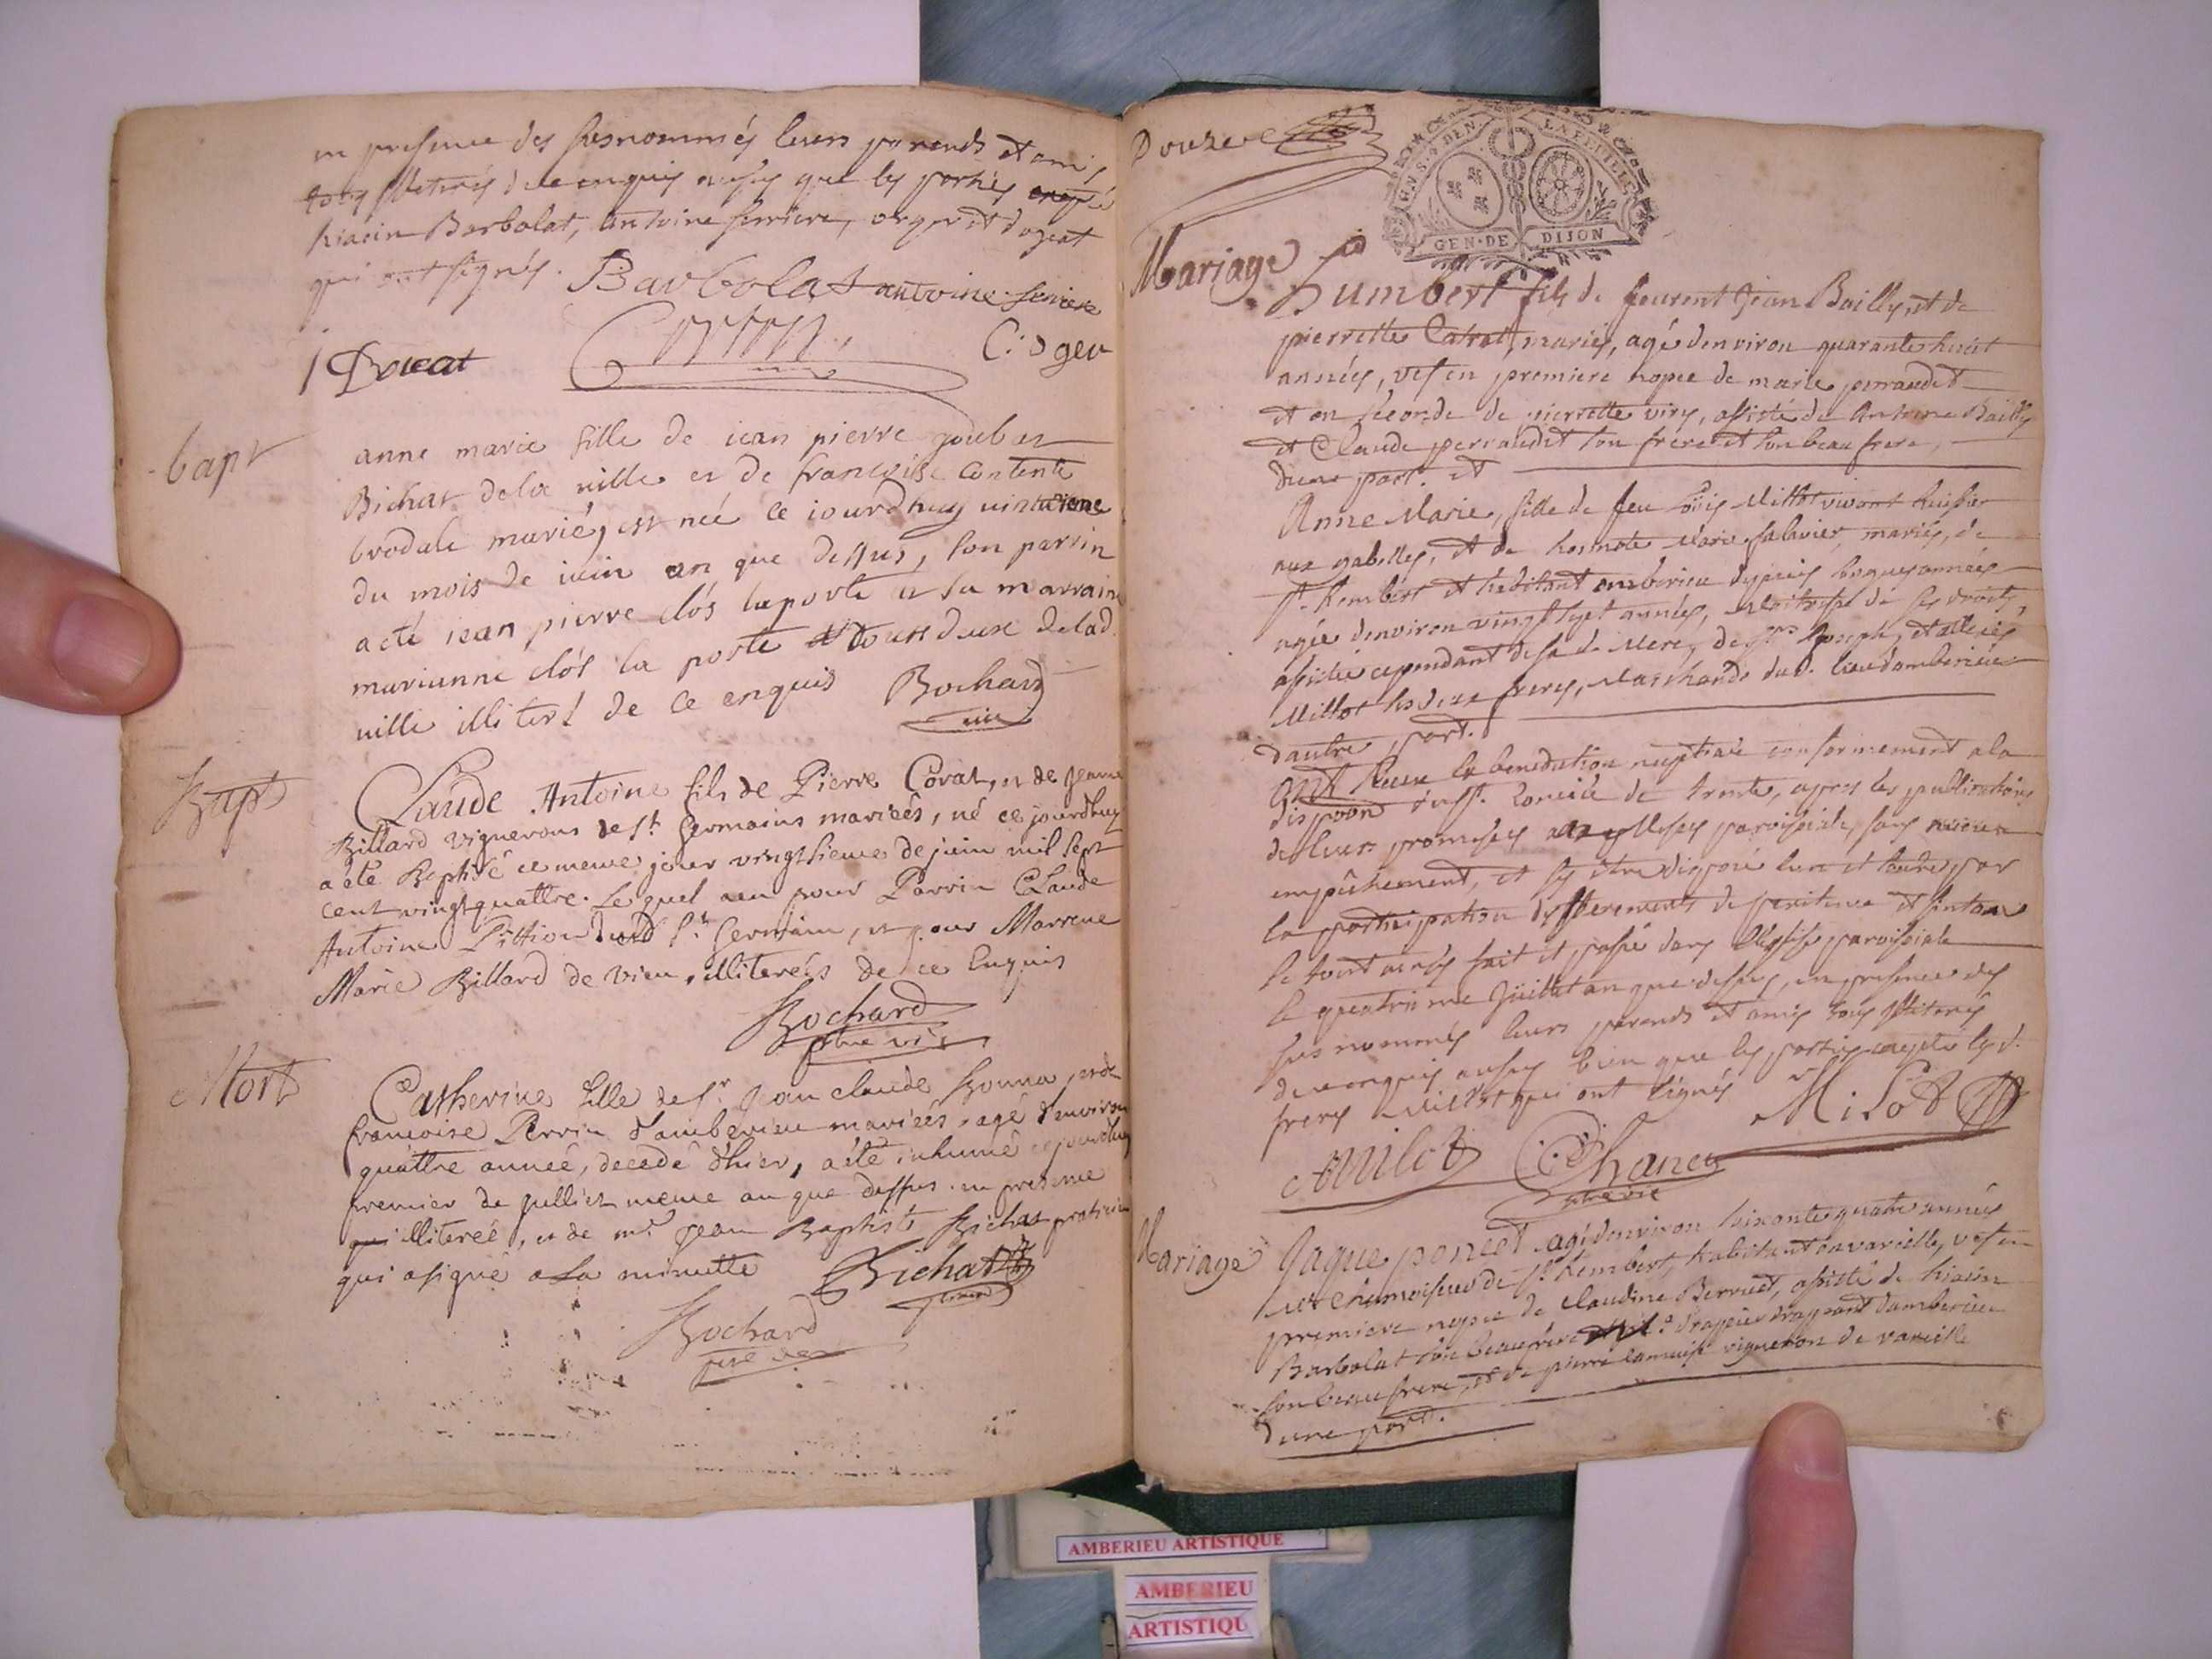 en presence des susnommés leurs parends et amis
tous illiterés de ce enquis aussy que les parties excepté
hiacin Barbolat, antoine ferriere, orger et dogat
qui ont signés. Barbolat antoine feriere
Docat C. Oger
bapt
anne marie fille de iean pierre goubet
Bichat dela ville et de francoise Contente
brodale mariés est neé ce iourdhuy
du mois de iuin an que dessus, son parrin
a eté iean pierre clós laporte et sa marraine
marianne clós la porte tous deux de lad.
ville illiteré de ce enquis Bochard
vic
Bapt
Claude Antoine fils de Pierre Corat, et de Jeanne
Billard vignerons de st. Germains mariéés, né ce jourdhuy
a été Baptisé ce meme jour vingtsieme de juin mil sept
cent vingt quattre. Lequel a eu pour Parrin Claude
Antoine dud st. Germain, et pour Marrene
Marie Billard de vieu, illiterés de ce Enquis
Bochard
ptre vic
Mort
Catherine fille de sr. Jean claude Bonna, et de
francoise Perrin d'amberieu mariéés, agé d'environ
quattre anneé, decedé d'hier, a été inhumé ce jourdhuy
premier de julliet meme an que dessus. en presence
illitereé, et de mr. Jean Baptiste Bichat praticien
qui a signé a La minutte Bichat
Bochard
Douze
GEN. DE DIJON
Mariage
Humbert fils de feu Jean Bailly, et de
pierrette mariés, agé denviron quarante huict
années, vef en premiere nopce de marie perraudet
et en seconde de pierrette viry, assisté de Antoine Bailly
et Claude perraudet son frere et son beau frere,
dune part. et
Anne Marie, fille de feu Loüis Millot vivant huissier
aux gabelles, et de honneste Marie salavier, mariés, de
st. Rembert et habitant amberieu depuis longues années
agée denviron vingt sept années, Maitresse de ses droits,
assistée cependant de sa de. Mere, de srs Joseph, et
Millot ses deux freres, Marchands dud. lieu damberieu
dautre part.
Ont Receu la benediction nuptiale conformement a la
dispoon du st. Concile de trente, apres les publications
de leurs promesses parroissiale, sans aucun
empêchement, et sy être disposé lun et lautre par
la participation des sacrements de penitence et
le tout ainsy fait et passé dans l'eglise parroissiale
le quatrieme Jüillet an que dessus, en presence des
sus nommés leurs parends et amis tous illiterés
de ce enquis aussy bien que les parties excepté lesd.
freres Millot qui ont signés Milot
Milot Chanel
ptre vic
Mariage
Jaque poncet agé denviron soixante quatre années
Mre chamoiseur de st. Rembert, habitant en vareille, vef en
premiere nopce de Claudine Berruet, assisté de hiacin
Barbolat son beau frere drapier drapant damberieu
son beau frere, et de pierre vigneron de vareille
dune part.
AMBERIEU ARTISTIQUE
AMBERIEU
ARTISTIQU